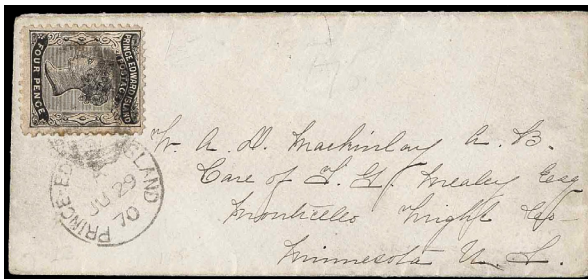 PRINCE EDWARD ISLAND
POSTAGE
FOUR PENCE
PRINCE ED ISLAND
29
70
W. A. D. Mackinlay A. B.
Care of Mealey Esq
Monticello Wright Co
Minnesota U. S.